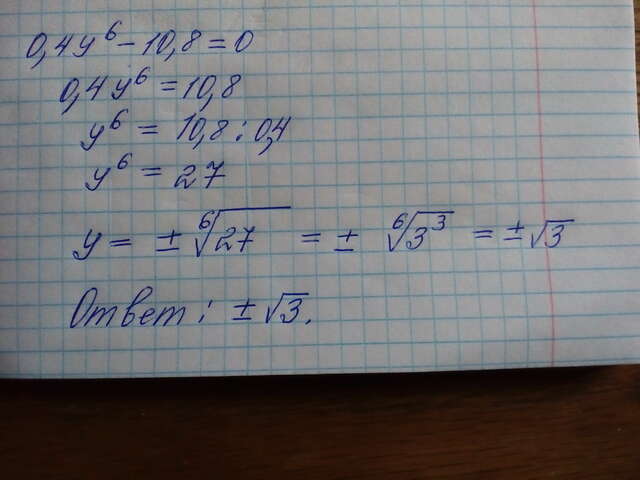 0,4y⁶ − 10,8 = 0
0,4y⁶ = 10,8
y⁶ = 10,8 : 0,4
y⁶ = 27
y = ± ⁶√27 = ± ⁶√3³ = ± √3
Ответ : ± √3.